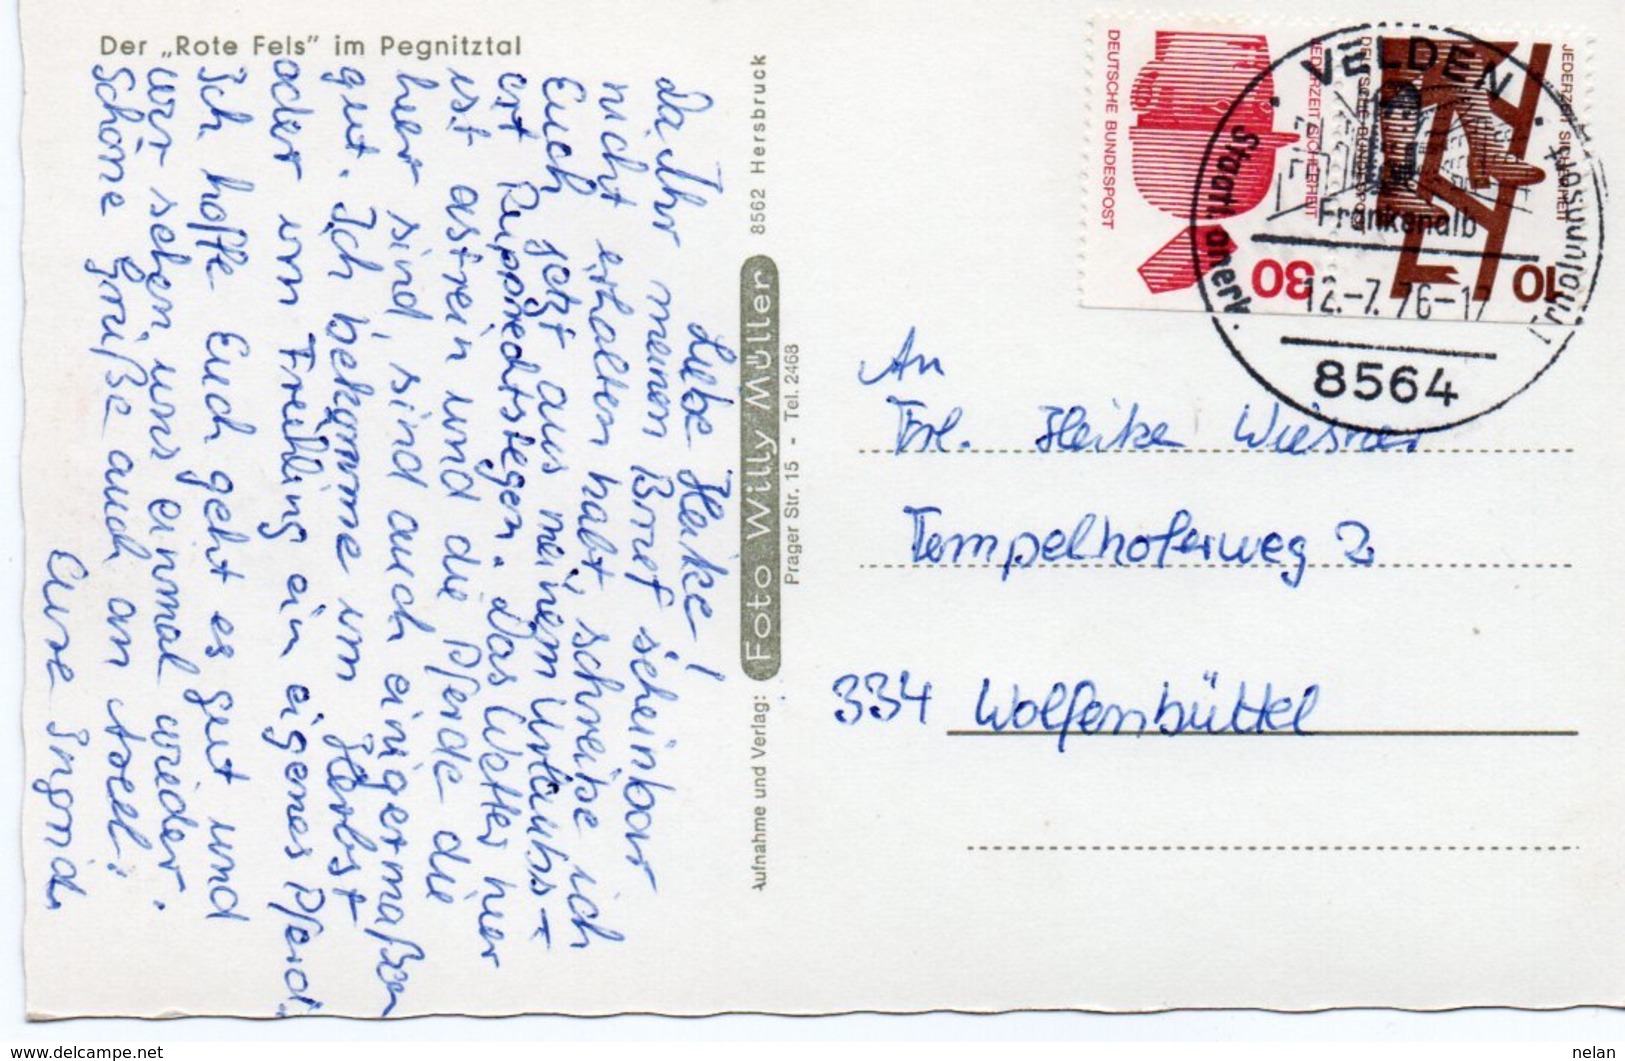 Der „Rote Fels" im Pegnitztal
Liebe Heike!
Da Ihr meinen Brief scheinbar
nicht erhalten habt, schreibe ich
Euch jetzt aus meinem Urlaubs-
ort Rupprechtstegen. Das Wetter hier
ist astrein und die Pferde die
hier sind, sind auch einigermaßen
gut. Ich bekomme im Herbst
oder im Frühling ein eigenes Pferd.
Ich hoffe Euch geht es gut und
wir sehen uns einmal wieder.
Schöne Grüße auch an Axel.
Eure Ingrid
Aufnahme und Verlag: Foto Willy Müller 8562 Hersbruck
Prager Str. 15 - Tel. 2468
DEUTSCHE BUNDESPOST
JEDERZEIT SICHERHEIT
30
DEUTSCHE BUNDESPOST
JEDERZEIT SICHERHEIT
10
VELDEN
Staatl. anerk. Erholungsort
Frankenalb
12.-7.76-17
8564
An
Frl. Heike Wiesner
Tempelhoferweg 2
334 Wolfenbüttel
www.delcampe.net
nelan